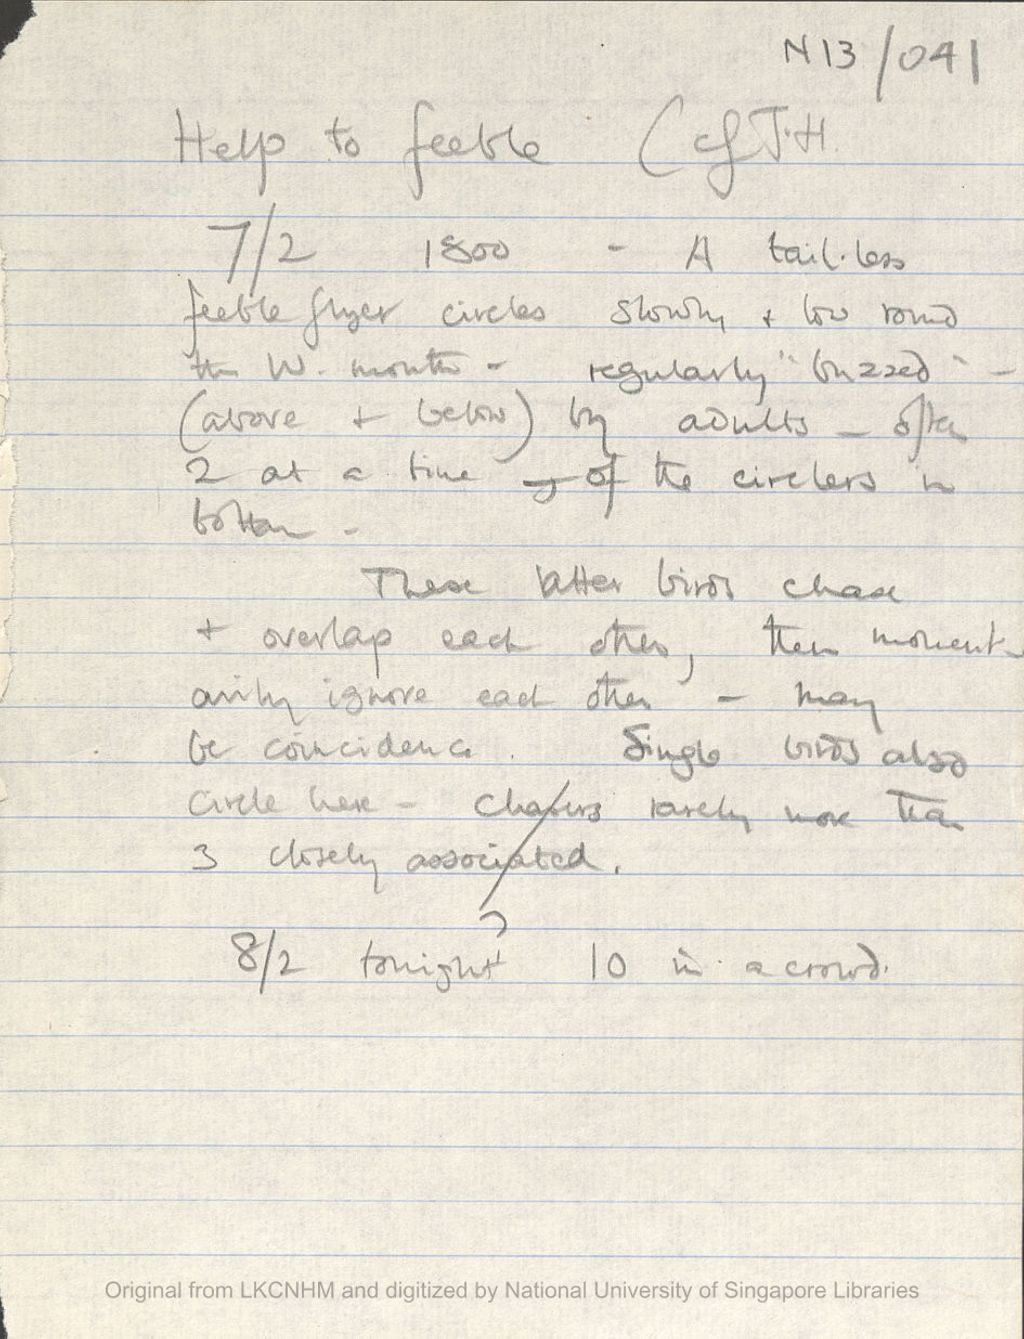 N13/041
Help to feeble (cf T.H.
7/2 1800 - A tail-less
feeble flyer circles slowly + low round
the W. mouth - regularly "buzzed" -
(above + below) by adults - often
2 at a time - of the circlers in
bottom -
These latter birds chase
+ overlap each other, then moment-
arily ignore each other - may
be coincidence. Single birds also
circle here - chasers rarely more than
3 closely associated.
?
8/2 tonight 10 in a crowd.
Original from LKCNHM and digitized by National University of Singapore Libraries